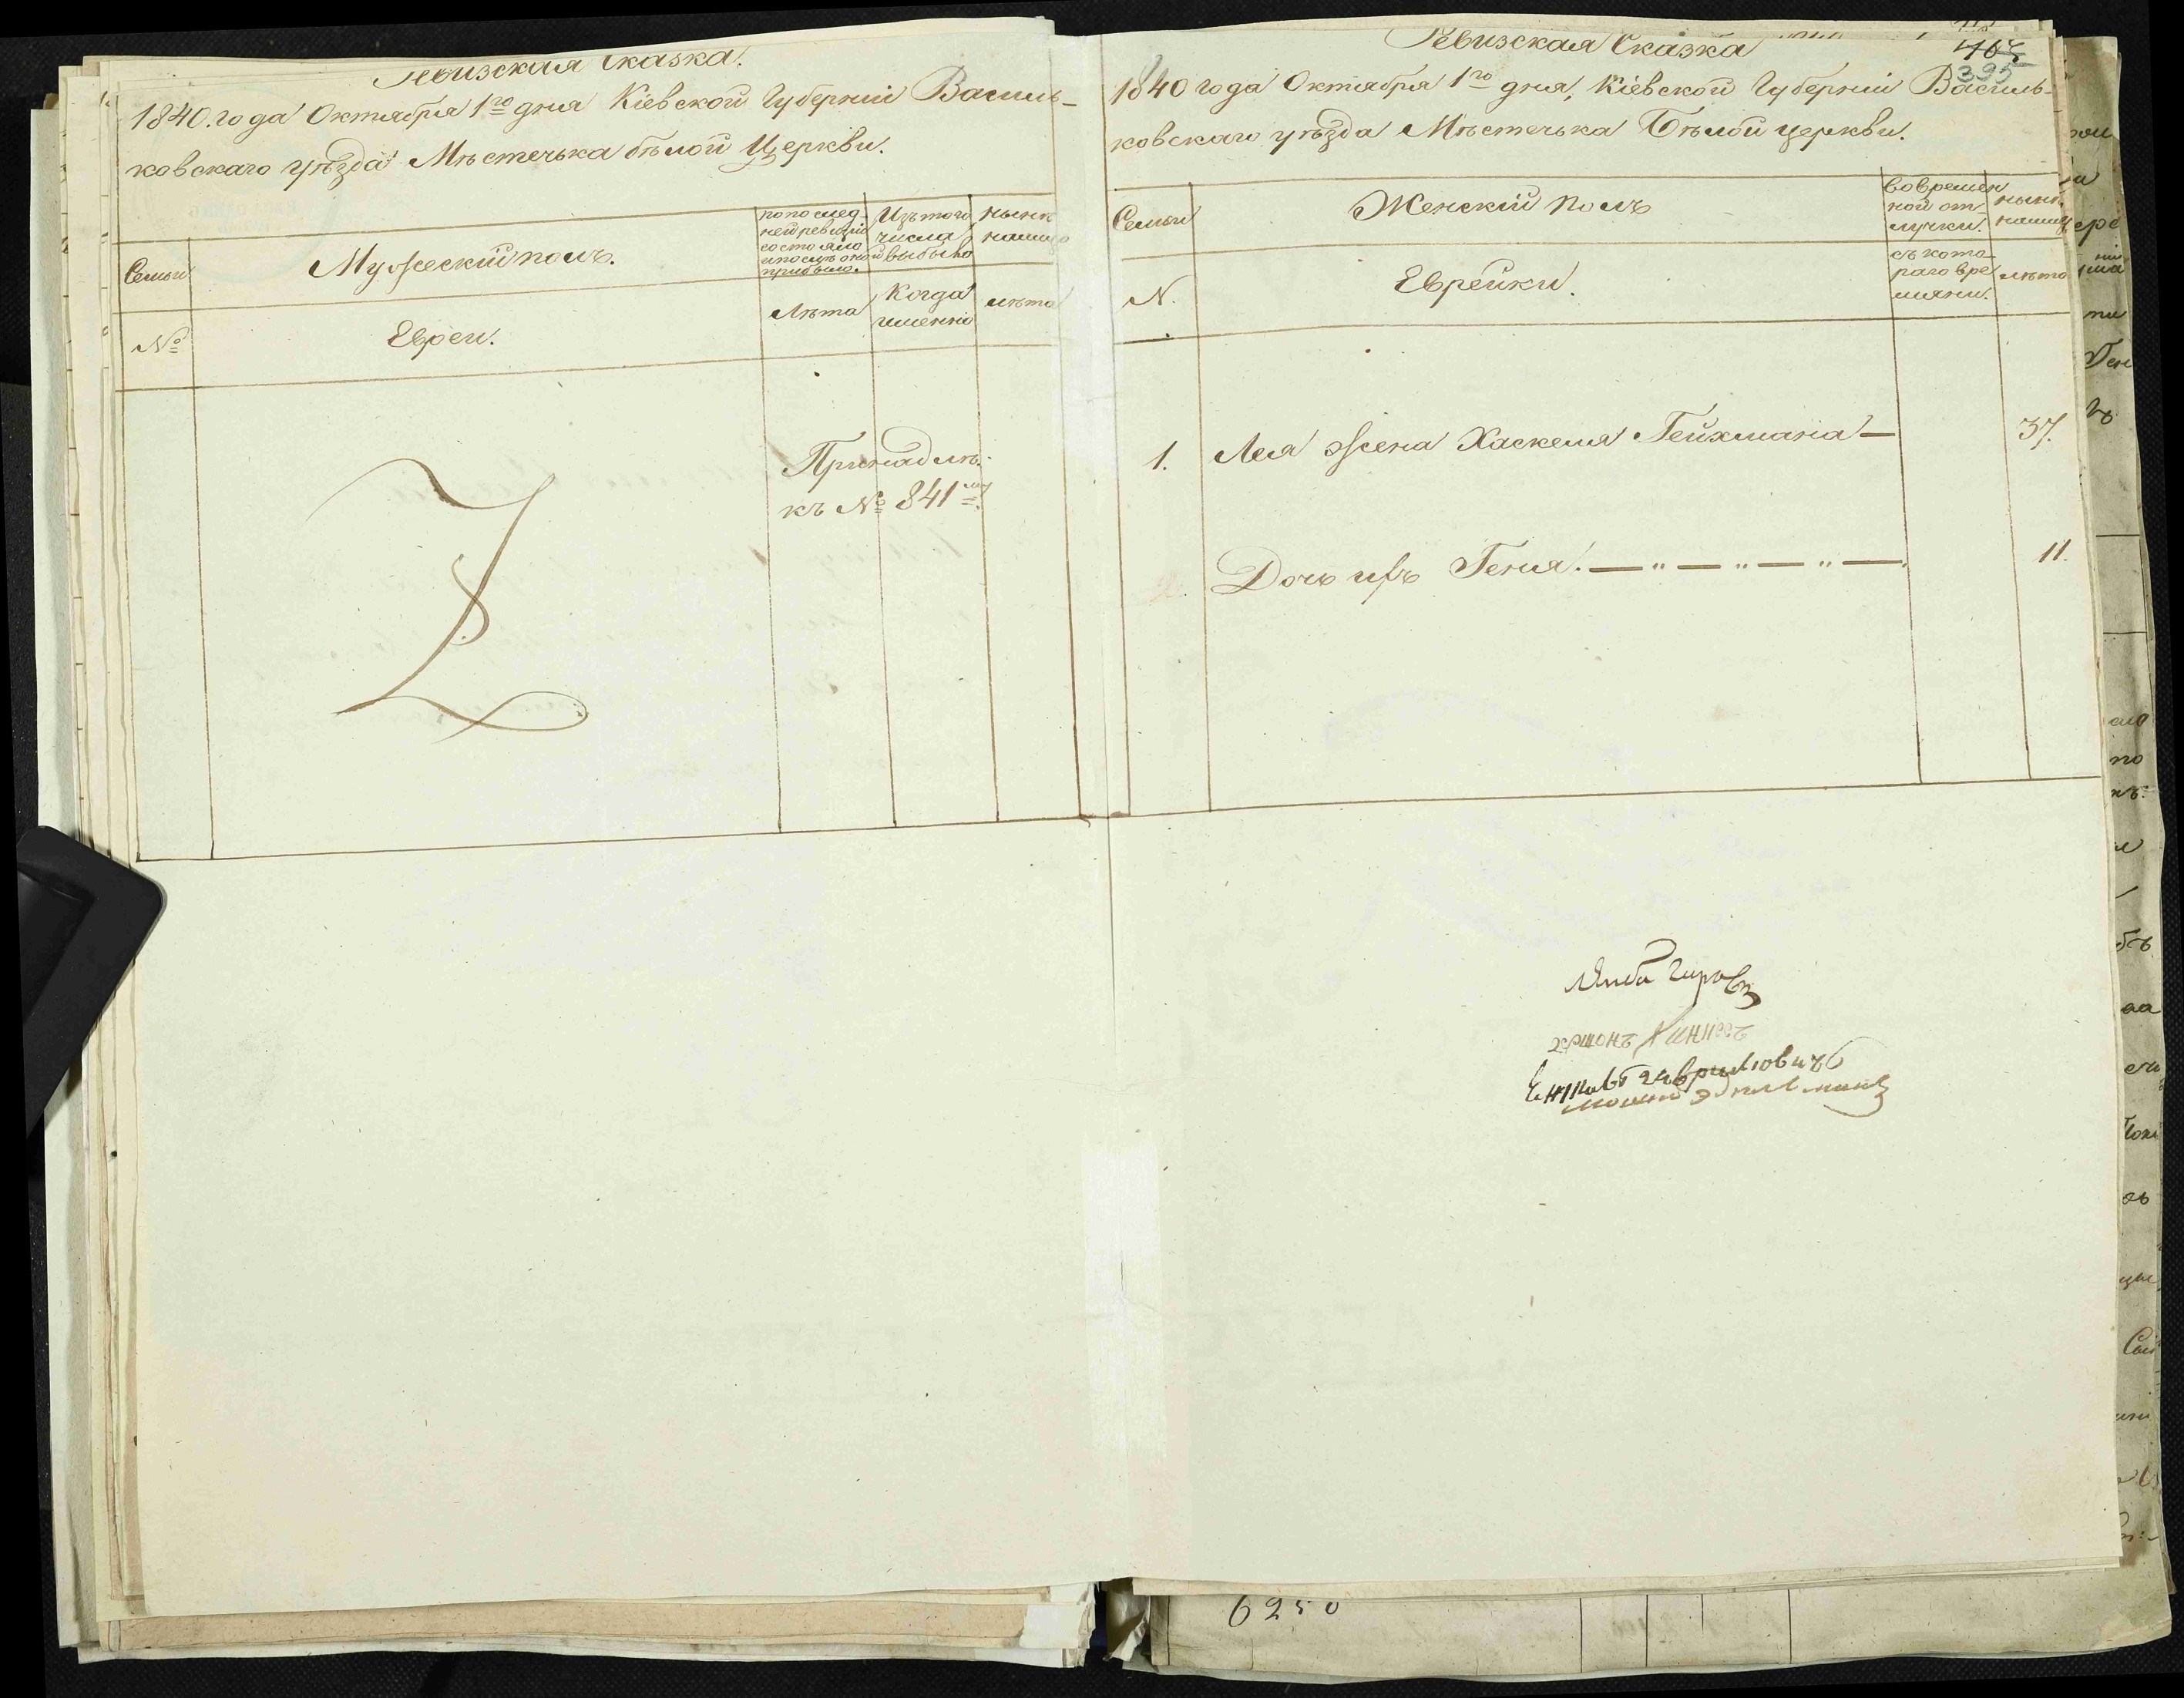 Ревизская Сказка.
1840. года Октября 1го дня Кіевской Губерніи Василь-
ковскаго уѣзда Мѣстечька бѣлой Церкви.
Семьи
Мужескій полъ.
по послед-
ней ревизіи
состояло
и послѣ оной
прибыло.
Изъ того
числа
выбыло
нынѣ
налицо
№
Евреи.
Лѣта
Когда
именно
лѣта
Принадлѣ:
къ № 841му
Ревизская Сказка
395
1840 года Октября 1го дня, Кіевской Губерніи Василь-
ковскаго уѣзда Мѣстечька Бѣлой церкви.
Семьи
Женскій полъ
во времен
ной от-
лучки.
нынѣ
налицо
N.
Еврейки.
съ кото
раго вре
мяни.
лѣта
1. Лея жена Хаскеля Гейхмана — 37.
Дочь ихъ Геня. — " — " — " — 11.
6250